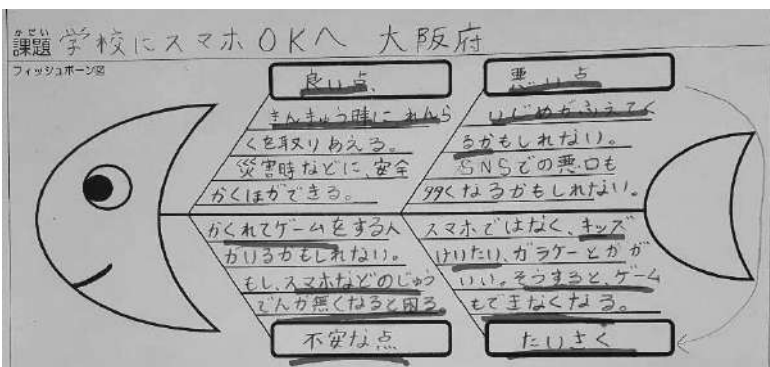 かだい
課題 学校にスマホOKへ 大阪府
フィッシュボーン図
良い点
きんきゅう時に れんら
くを取りあえる。
災害時などに、安全
かくほができる。
悪い点
いじめがふえてく
るかもしれない。
SNSでの悪口も
多くなるかもしれない。
かくれてゲームをする人
がいるかもしれない。
もし、スマホなどのじゅう
でんが無くなると困る。
不安な点
スマホではなく、キッズ
けいたい、ガラケーとかが
いい。そうすると、ゲーム
もできなくなる。
たいさく